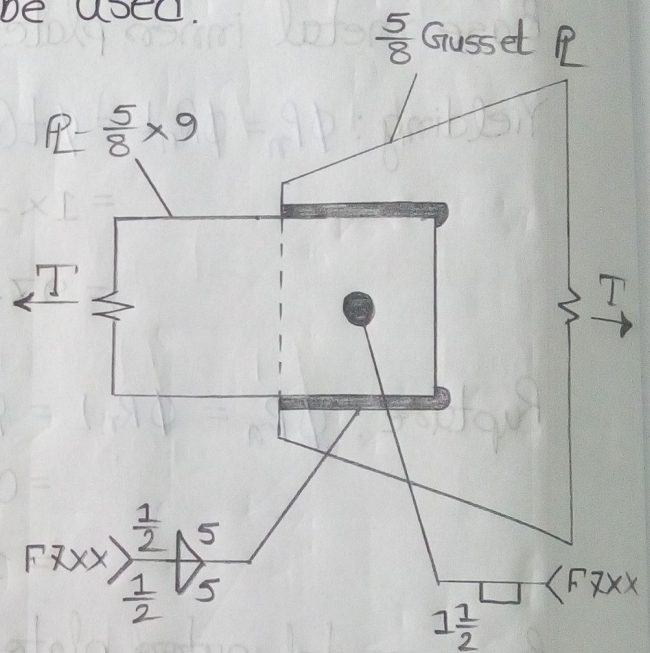 be used.
5/8 Gusset PL
PL- 5/8 × 9
T
T
F7XX 1/2 5
1/2 5
1 1/2 F7XX